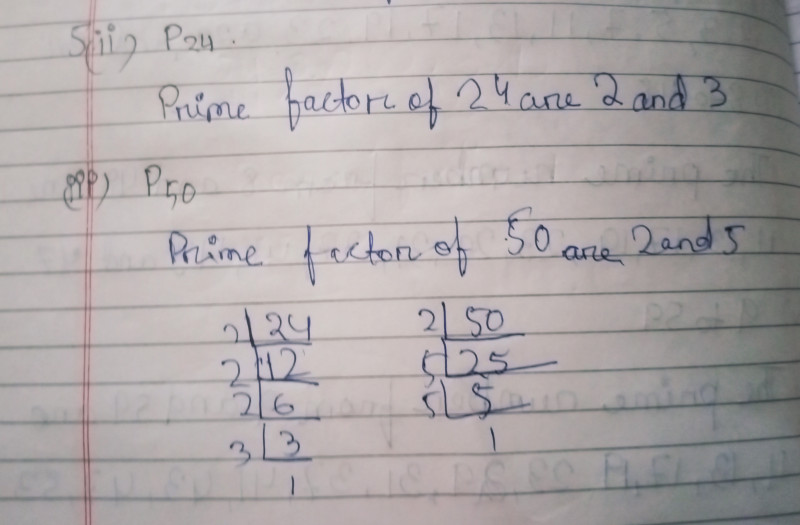 5(ii) P24.
Prime factors of 24 are 2 and 3
(iii) P50
Prime factor of 50 are 2 and 5
2 24 2 50
2 12 5 25
2 6 5 5
3 3 1
1